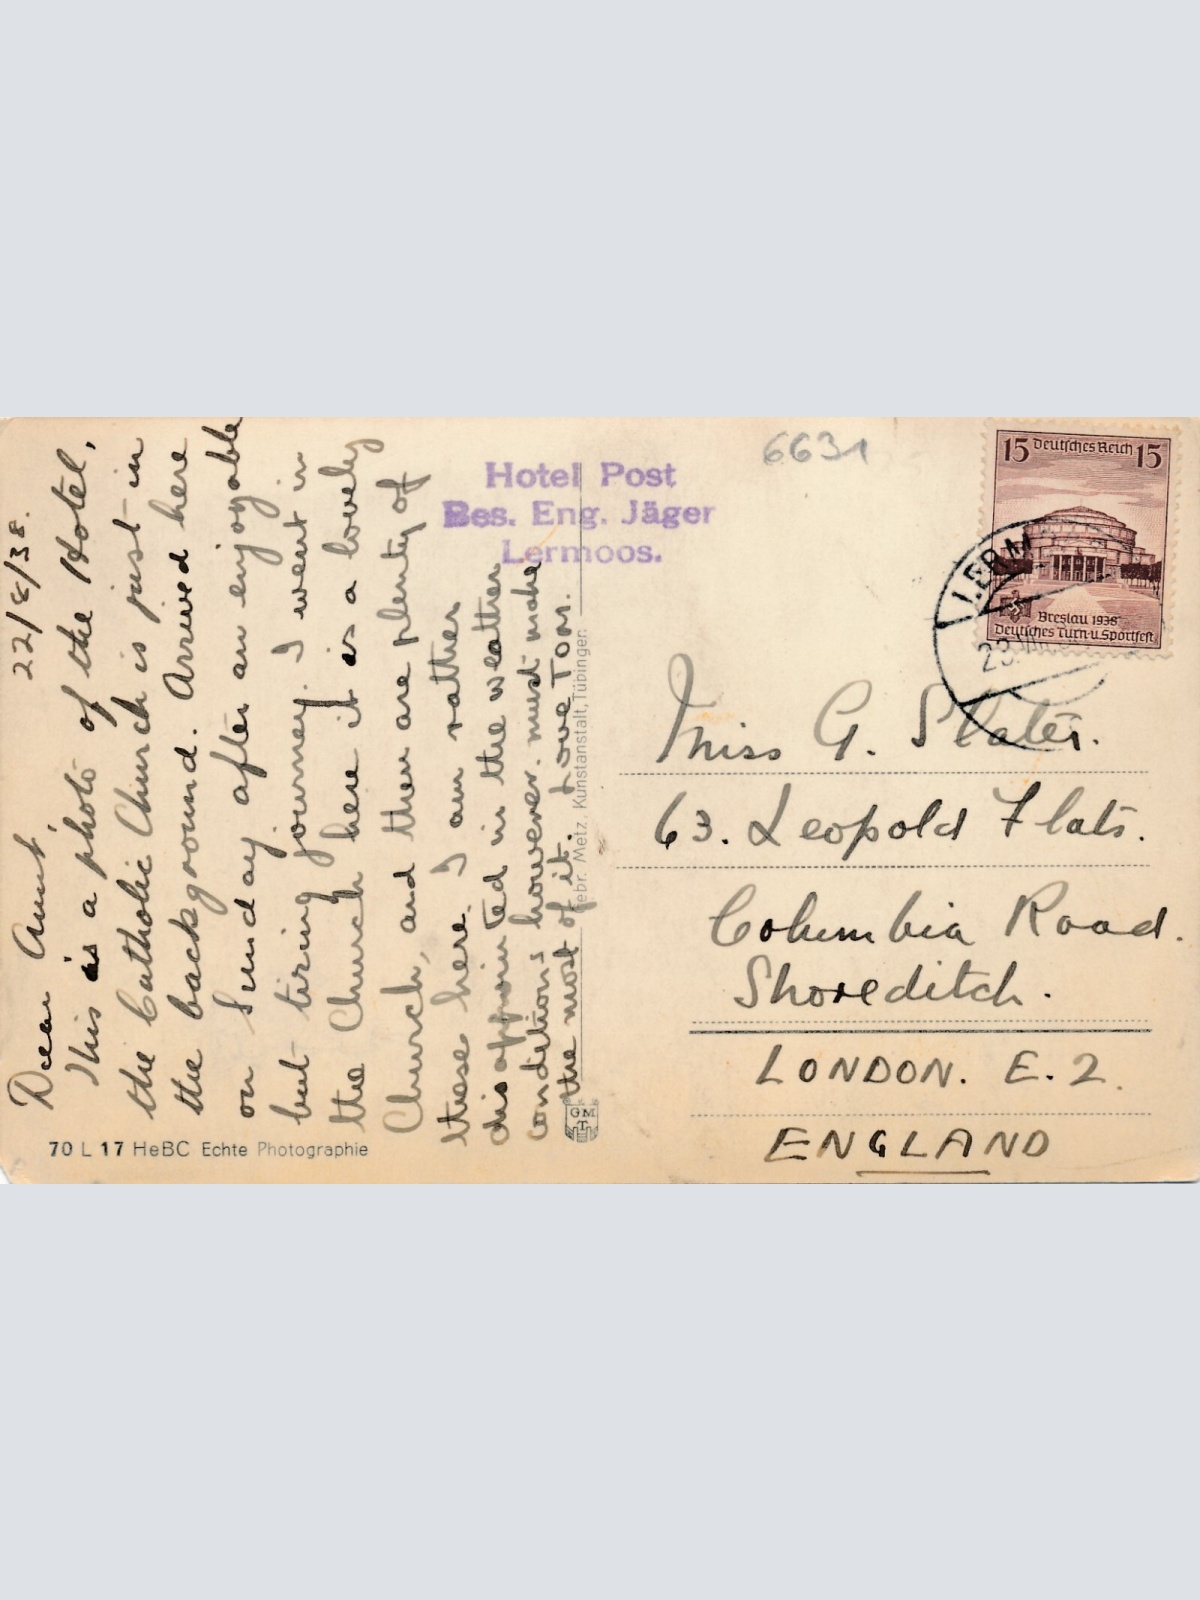 22/8/38.
Dear Aunt,
This is a photo of the Hotel,
the Catholic Church is just in
the background. Arrived here
on Sunday after an enjoyable
but tiring journey. I went in
the Church here it is a lovely
Church, and there are plenty of
these here. I am rather
disappointed in the weather
conditions however. must make
the most of it. Love Tom.
70 L 17 HeBC Echte Photographie
Hotel Post
Bes. Eng. Jäger
Lermoos.
Gebr. Metz, Kunstanstalt, Tübingen
GMT
6631
15 Deutsches Reich 15
Breslau 1938
Deutsches Turn-u. Sportfest
LERM
Miss G. Slater.
63. Leopold Flats.
Columbia Road.
Shoreditch.
LONDON. E.2.
ENGLAND